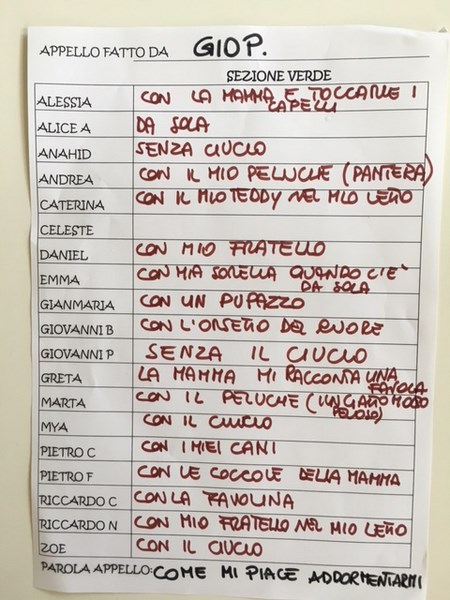 APPELLO FATTO DA GIO P.
SEZIONE VERDE
ALESSIA CON LA MAMMA E TOCCARLE I
CAPELLI
ALICE A DA SOLA
ANAHID SENZA CIUCIO
ANDREA CON IL MIO PELUCHE (PANTERA)
CATERINA CON IL MIO TEDDY NEL MIO LETTO
CELESTE
DANIEL CON MIO FRATELLO
EMMA CON MIA SORELLA QUANDO C'E'
DA SOLA
GIANMARIA CON UN PUPAZZO
GIOVANNI B CON L'ORSETTO DEL CUORE
GIOVANNI P SENZA IL CIUCIO
GRETA LA MAMMA MI RACCONTA UNA
FAVOLA
MARTA CON IL PELUCHE (UN GATTO MOSO
PELOSO)
MYA CON IL CIUCIO
PIETRO C CON I MIEI CANI
PIETRO F CON LE COCCOLE DELLA MAMMA
RICCARDO C CON LA FAVOLINA
RICCARDO N CON MIO FRATELLO NEL MIO LETTO
ZOE CON IL CIUCIO
PAROLA APPELLO: COME MI PIACE ADDORMENTARMI